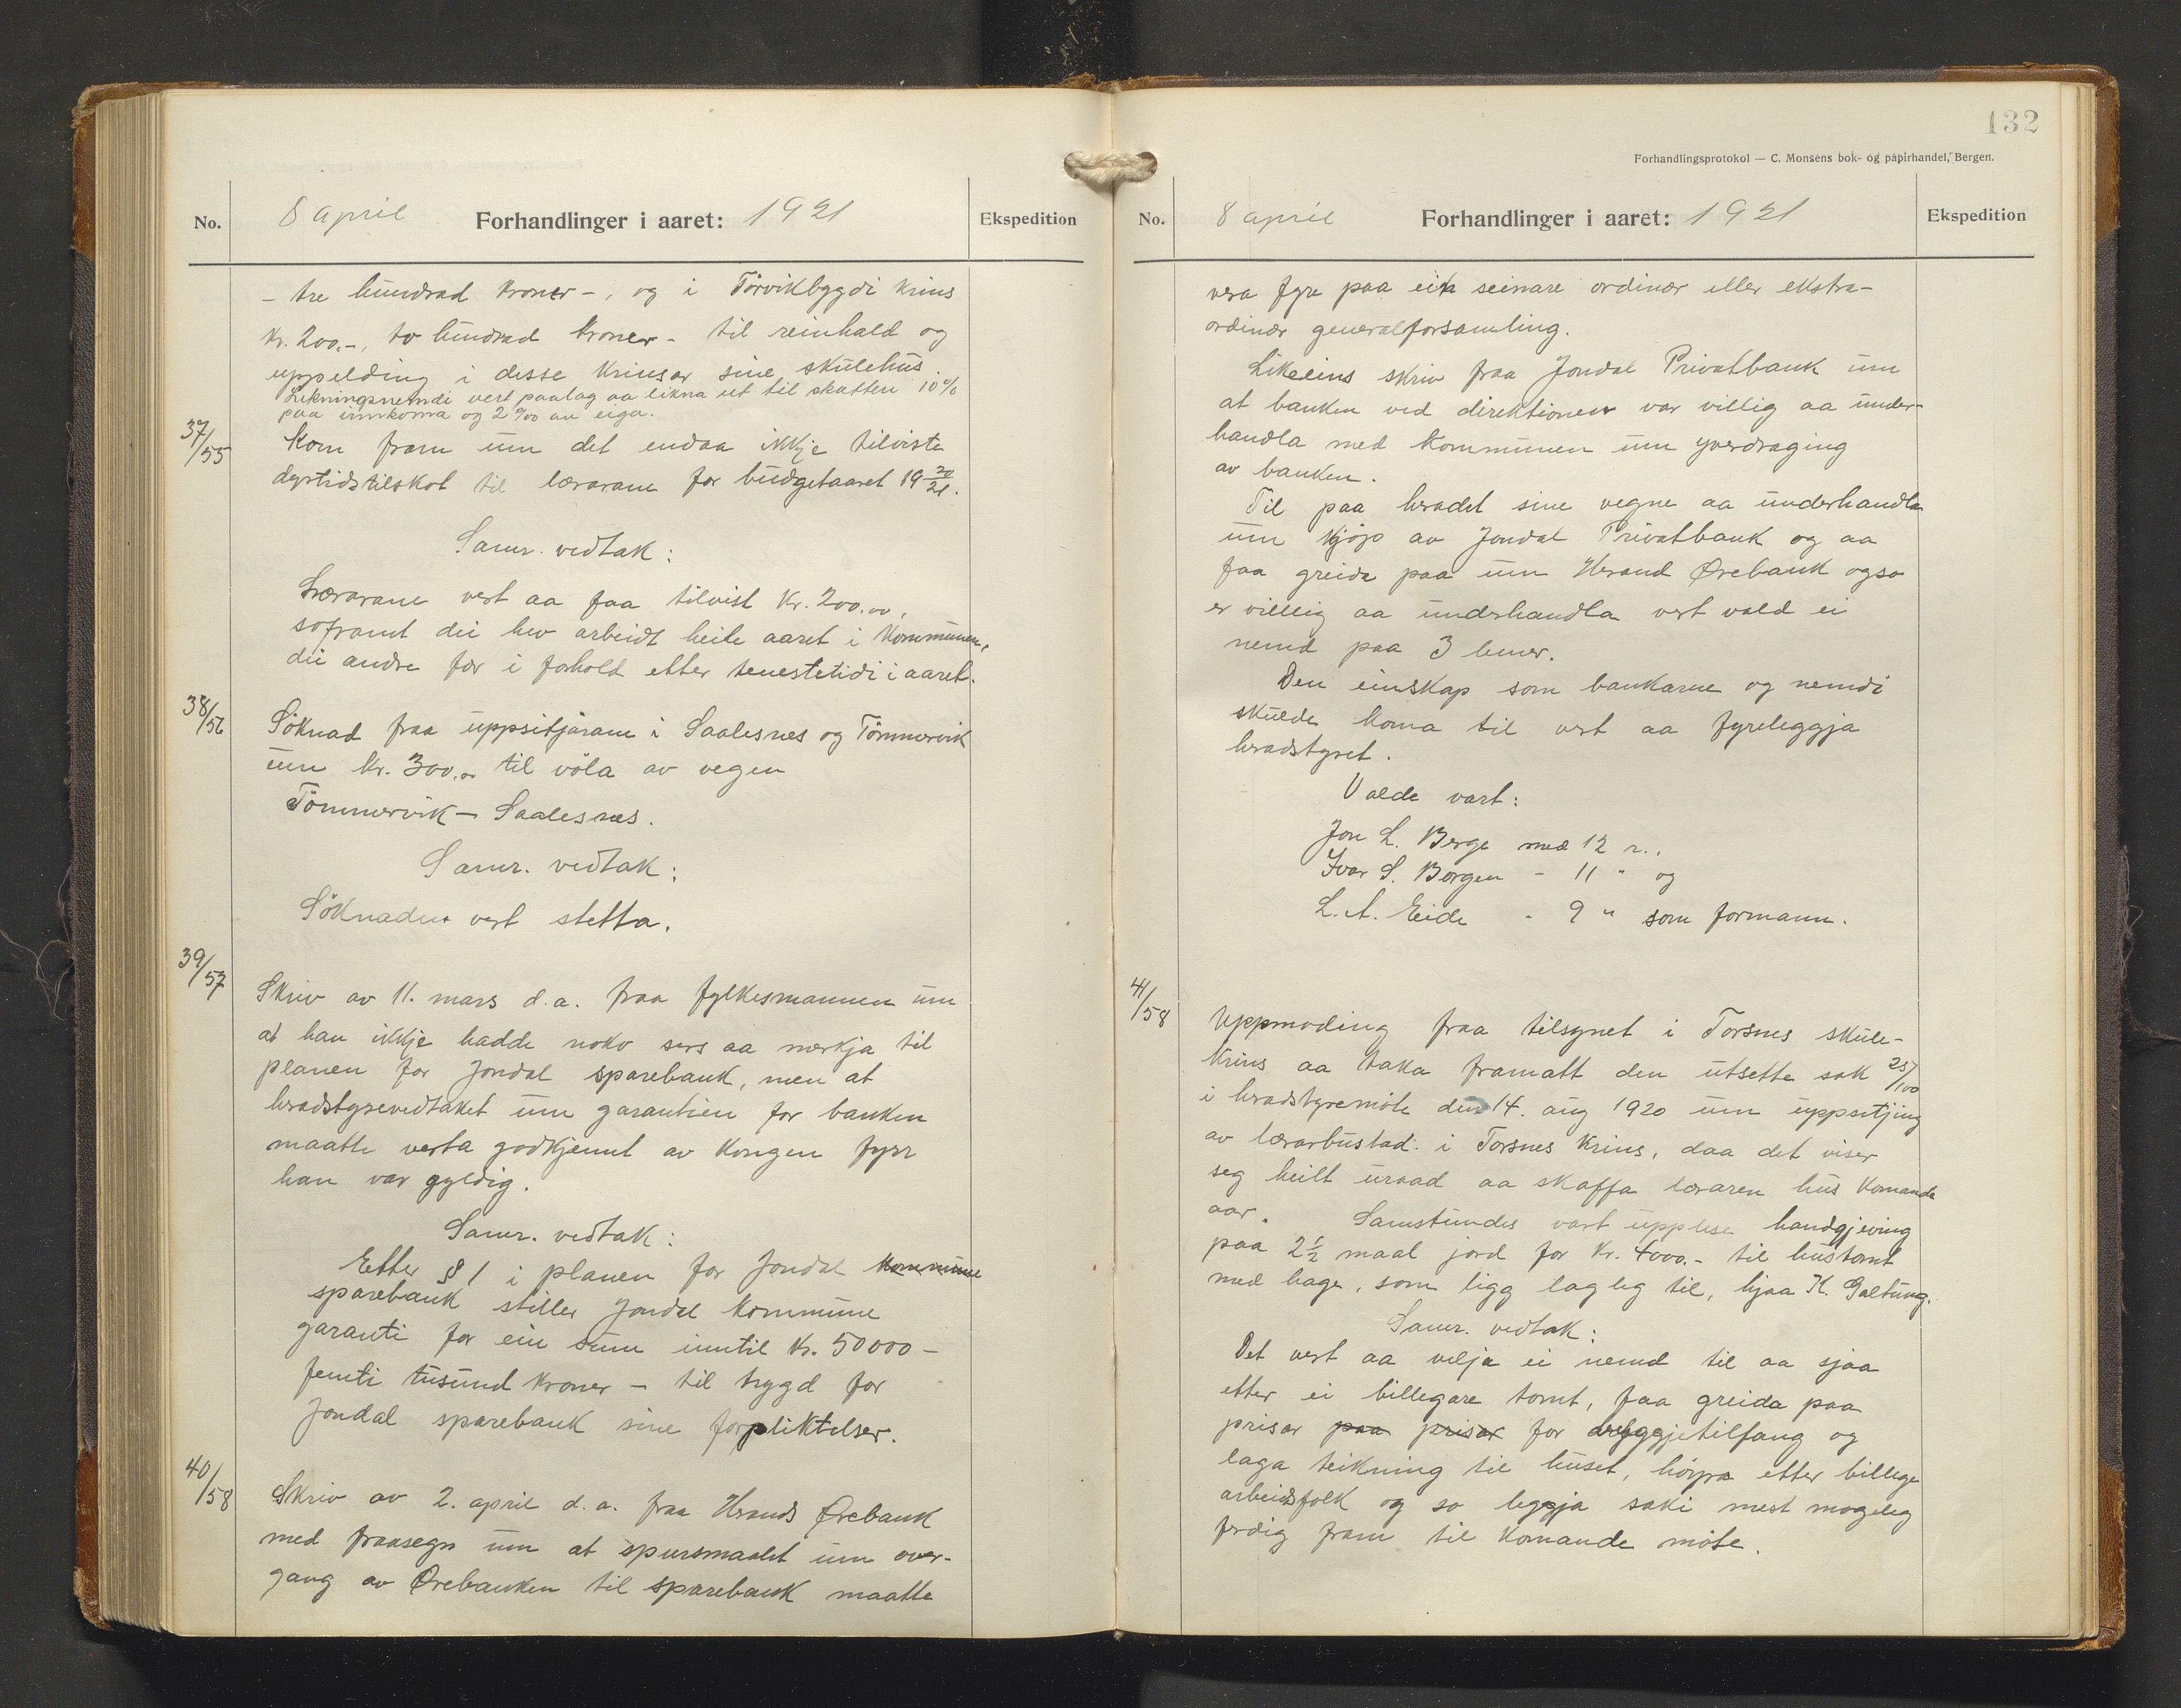 No. 8 april Forhandlinger i aaret: 1921 Ekspedition
- tre hundrad kroner -, og i Törvikbygdi krins
Kr. 200.-, to hundrad kroner - til reinhald og
uppelding i desse krinsar sine skulehus.
Likningsnemdi vert paalag aa likna ut til skatten 10%
paa innkoma og 2 ‰ av eiga.
37/55 Kom fram um det endaa ikkje tilviste
dyrtidstilskot til lærarane for budgetaaret 19 20/21.
Samr. vedtak:
Lærarane vert aa faa tilvist Kr. 200.00,
soframt dei hev arbeidt heile aaret i kommunen,
dei andre fær i forhold etter tenestetidi i aaret.
38/56 Söknad fraa uppsitjarane i Saalesnes og Tömmervik
um kr. 300.00 til völa av vegen
Tömmervik - Saalesnes.
Samr. vedtak:
Söknaden vert stetta.
39/57 Skriv av 11. mars d.a. fraa fylkesmannen um
at han ikkje hadde noko sers aa merkja til
planen for Jondal sparebank, men at
heradstyrevedtaket um garantien for banken
maatte verta godkjennt av Kongen fyrr
han var gyldig.
Samr. vedtak:
Etter § 1 i planen for Jondal kommune
sparebank stiller Jondal kommune
garanti for ein sum inntil kr. 50000 -
femti tusund kroner - til trygd for
Jondal sparebank sine forpliktelser.
40/58 Skriv av 2. april d.a. fraa Herands Örebank
med fraasegn um at spursmaalet um over-
gang av Örebanken til sparebank maatte
132
Forhandlingsprotokol — C. Monsens bok- og papirhandel, Bergen.
No. 8 april Forhandlinger i aaret: 1921 Ekspedition
vera fyre paa ein seinare ordinær eller ekstra-
ordinær generalforsamling.
Likeeins skriv fraa Jondal Privatbank um
at banken ved direktionen var villig aa under-
handla med kommunen um yverdraging
av banken.
Til paa heradet sine vegne aa underhandla
um kjöp av Jondal Privatbank og aa
faa greida paa um Herand Örebank ogso
er villig aa underhandla vert vald ei
nemd paa 3 lemer.
Den einskap som bankarne og nemdi
skulde koma til vert aa fyreleggja
heradstyret.
Valde vart:
Jon L. Berge med 12 r.,
Ivar S. Borgen - 11 " og
L. A. Eide - 9 " som formann.
41/58 Uppmoding fraa tilsynet i Torsnes skule-
krins aa taka framatt den utsette sak 25/100
i heradstyremöte den 14. aug 1920 um uppsetjing
av lærarbustad i Torsnes krins, daa det viser
seg heilt uraad aa skaffa læraren hus komande
aar. Samstundes vart upplese handgjeving
paa 2 1/2 maal jord for kr. 4000.- til hustomt
med hage, som ligg lagleg til, hjaa K. Galtung.
Samr. vedtak:
Det vert aa velja ei nemd til aa sjaa
etter ei billegare tomt, faa greida paa
prisar paa prisar for byggjetilfang og
laga teikning til huset, höyra etter billege
arbeidsfolk og so leggja saki mest mogeleg
ferdig fram til komande möte.